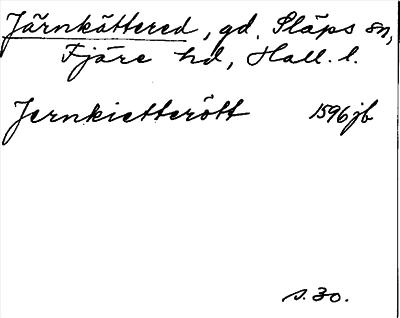 Järnkättered, gd. Släps sn,
Fjäre hd, Hall. l.
Jernkietterött 1596 jb
s. 30.